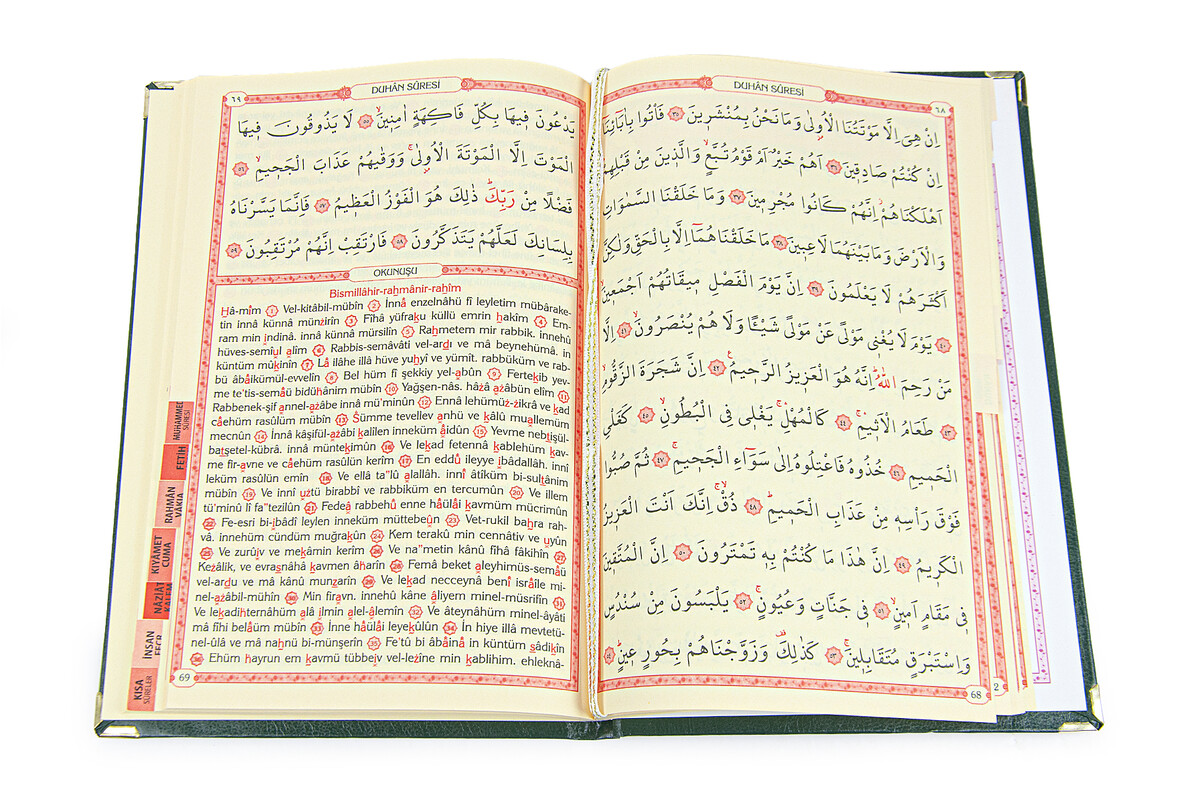 DUHÂN SÛRESİ
٦٨
اِنْ هِىَ اِلَّا مَوْتَتُنَا الْاُولٰى وَمَا نَحْنُ بِمُنْشَرٖينَ ﴿٣٥﴾ فَأْتُوا بِاٰبَائِنَا
اِنْ كُنْتُمْ صَادِقٖينَ ﴿٣٦﴾ اَهُمْ خَيْرٌ اَمْ قَوْمُ تُبَّعٍ وَالَّذٖينَ مِنْ قَبْلِهِمْ
اَهْلَكْنَاهُمْ اِنَّهُمْ كَانُوا مُجْرِمٖينَ ﴿٣٧﴾ وَمَا خَلَقْنَا السَّمٰوَاتِ
وَالْاَرْضَ وَمَا بَيْنَهُمَا لَاعِبٖينَ ﴿٣٨﴾ مَا خَلَقْنَاهُمَا اِلَّا بِالْحَقِّ وَلٰكِنَّ
اَكْثَرَهُمْ لَا يَعْلَمُونَ ﴿٣٩﴾ اِنَّ يَوْمَ الْفَصْلِ مٖيقَاتُهُمْ اَجْمَعٖينَ
﴿٤٠﴾ يَوْمَ لَا يُغْنٖى مَوْلًى عَنْ مَوْلًى شَيْـًٔا وَلَا هُمْ يُنْصَرُونَ ﴿٤١﴾ اِلَّا
مَنْ رَحِمَ اللّٰهُ اِنَّهُ هُوَ الْعَزٖيزُ الرَّحٖيمُ ﴿٤٢﴾ اِنَّ شَجَرَةَ الزَّقُّومِ
﴿٤٣﴾ طَعَامُ الْاَثٖيمِ ﴿٤٤﴾ كَالْمُهْلِ يَغْلٖى فِى الْبُطُونِ ﴿٤٥﴾ كَغَلْىِ
الْحَمٖيمِ ﴿٤٦﴾ خُذُوهُ فَاعْتِلُوهُ اِلٰى سَوَٓاءِ الْجَحٖيمِ ﴿٤٧﴾ ثُمَّ صُبُّوا
فَوْقَ رَأْسِهٖ مِنْ عَذَابِ الْحَمٖيمِ ﴿٤٨﴾ ذُقْ اِنَّكَ اَنْتَ الْعَزٖيزُ
الْكَرٖيمُ ﴿٤٩﴾ اِنَّ هٰذَا مَا كُنْتُمْ بِهٖ تَمْتَرُونَ ﴿٥٠﴾ اِنَّ الْمُتَّقٖينَ
فٖى مَقَامٍ اَمٖينٍ ﴿٥١﴾ فٖى جَنَّاتٍ وَعُيُونٍ ﴿٥٢﴾ يَلْبَسُونَ مِنْ سُنْدُسٍ
وَاِسْتَبْرَقٍ مُتَقَابِلٖينَ ﴿٥٣﴾ كَذٰلِكَ وَزَوَّجْنَاهُمْ بِحُورٍ عٖينٍ ﴿٥٤﴾
68
2
DUHÂN SÛRESİ
٦٩
يَدْعُونَ فٖيهَا بِكُلِّ فَاكِهَةٍ اٰمِنٖينَ ﴿٥٥﴾ لَا يَذُوقُونَ فٖيهَا
الْمَوْتَ اِلَّا الْمَوْتَةَ الْاُولٰى وَوَقٰيهُمْ عَذَابَ الْجَحٖيمِ ﴿٥٦﴾
فَضْلًا مِنْ رَبِّكَ ذٰلِكَ هُوَ الْفَوْزُ الْعَظٖيمُ ﴿٥٧﴾ فَاِنَّمَا يَسَّرْنَاهُ
بِلِسَانِكَ لَعَلَّهُمْ يَتَذَكَّرُونَ ﴿٥٨﴾ فَارْتَقِبْ اِنَّهُمْ مُرْتَقِبُونَ ﴿٥٩﴾
OKUNUŞU
Bismillâhir-rahmânir-rahîm
Hâ-mîm 1 Vel-kitâbil-mübîn 2 İnnâ enzelnâhü fî leyletim mübârake-
tin innâ künnâ münzirîn 3 Fîhâ yüfraku küllü emrin hakîm 4 Em-
ram min indinâ. innâ künnâ mürsilîn 5 Rahmetem mir rabbik. innehû
hüves-semîul alîm 6 Rabbis-semâvâti vel-ardı ve mâ beynehümâ. in
küntüm mûkinîn 7 Lâ ilâhe illâ hüve yuhyî ve yümît. rabbüküm ve rab-
bü âbâikümül-evvelîn 8 Bel hüm fî şekkiy yel-abûn 9 Fertekib yev-
me te'tis-semâü bidühânim mübîn 10 Yağşen-nâs. hâzâ azâbün elîm 11
Rabbenek-şif annel-azâbe innâ mü'minûn 12 Ennâ lehümüz-zikrâ ve kad
câehüm rasûlün mübîn 13 Sümme tevellev anhü ve kâlû muallemüm
mecnûn 14 İnnâ kâşifül-azâbi kalîlen inneküm âidûn 15 Yevme nebtişül-
batşetel-kübrâ. innâ müntekimûn 16 Ve lekad fetennâ kablehüm kav-
me fir-avne ve câehüm rasûlün kerîm 17 En eddû ileyye ibâdallâh. innî
leküm rasûlün emîn 18 Ve ellâ ta"lû alallâh. innî âtîküm bi-sultânim
mübîn 19 Ve innî uztü birabbî ve rabbiküm en tercumûn 20 Ve illem
tü'minû lî fa"tezilûn 21 Fedeâ rabbehû enne hâülâi kavmüm mücrimûn
22 Fe-esri bi-ıbâdî leylen inneküm müttebeûn 23 Vet-rukil bahra rah-
vâ. innehüm cündüm muğrakûn 24 Kem terakû min cennâtiv ve uyûn
25 Ve zurûıv ve mekâmin kerîm 26 Ve na"metin kânû fîhâ fâkihîn 27
Kezâlik, ve evrasnâhâ kavmen âharîn 28 Femâ beket aleyhimüs-semâü
vel-ardu ve mâ kânû munzarîn 29 Ve lekad necceynâ benî isrâîle mi-
nel-azâbil-mühîn 30 Min firavn. innehû kâne âliyem minel-müsrifîn 31
Ve lekadihternâhüm alâ ılmin alel-âlemîn 32 Ve âteynâhüm minel-âyâti
mâ fîhi belâüm mübîn 33 İnne hâülâi leyekûlûn 34 İn hiye illâ mevtetü-
nel-ûlâ ve mâ nahnü bi-münşerîn 35 Fe'tû bi âbâinâ in küntüm sâdikîn
36 Ehüm hayrun em kavmü tübbeıv vel-lezîne min kablihim. ehleknâ-
69
MUHAMMED SÛRESİ
FETİH
RAHMÂN
VÂKIA
KIYAMET
CUMA
NÂZİÂT
İNSAN
KISA
SÛRELER